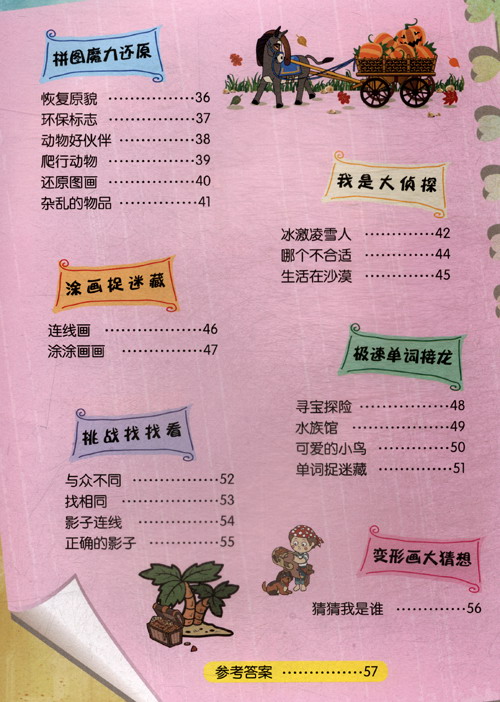 拼图魔力还原
恢复原貌 ················36
环保标志 ················37
动物好伙伴 ··············38
爬行动物 ················39
还原图画 ················40
杂乱的物品 ··············41
我是大侦探
冰激凌雪人 ··············42
哪个不合适 ··············44
生活在沙漠 ··············45
涂画捉迷藏
连线画 ··················46
涂涂画画 ················47
极速单词接龙
寻宝探险 ················48
水族馆 ··················49
可爱的小鸟 ··············50
单词捉迷藏 ··············51
挑战找找看
与众不同 ················52
找相同 ··················53
影子连线 ················54
正确的影子 ··············55
变形画大猜想
猜猜我是谁 ············56
参考答案 ···············57